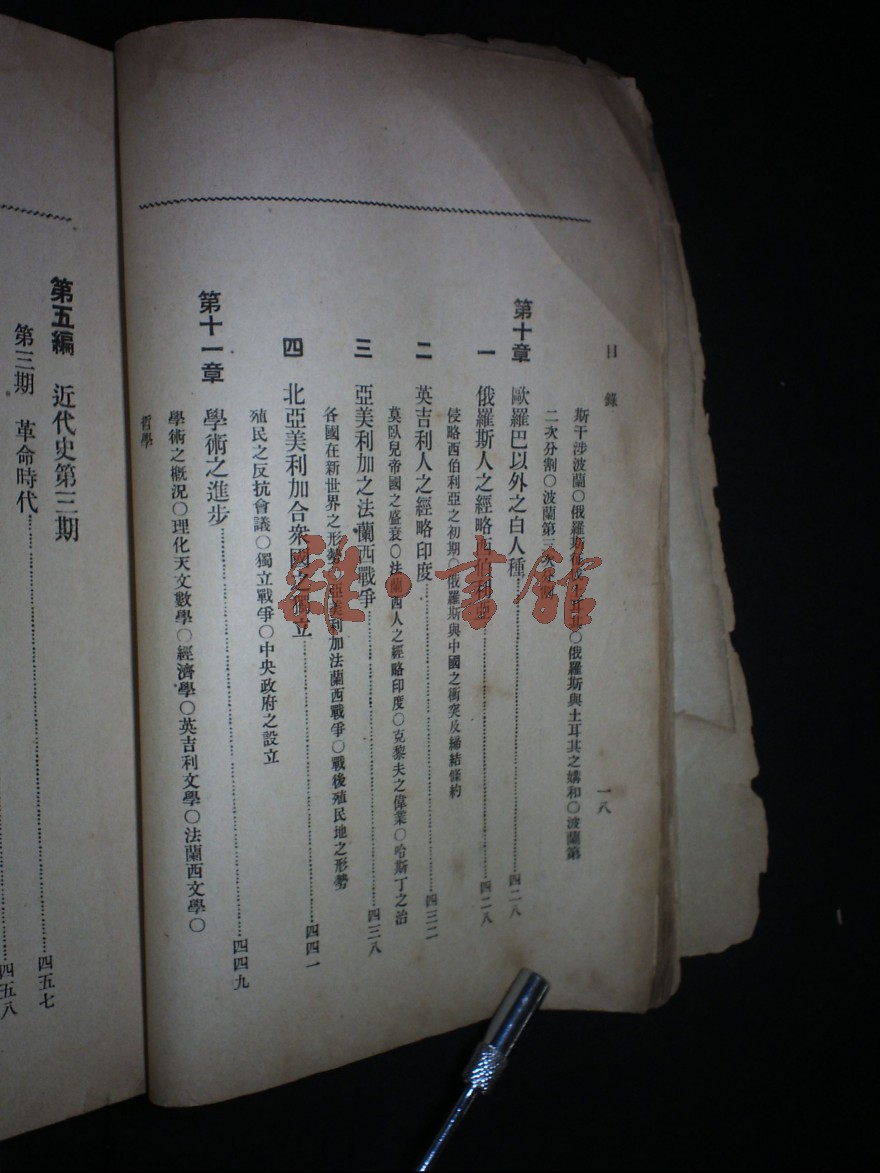 目錄 一八
斯干涉波蘭○俄羅斯征伐土耳其○俄羅斯與土耳其之媾和○波蘭第
二次分割○波蘭第三次分割
第十章 歐羅巴以外之白人種 四二八
一 俄羅斯人之經略西伯利亞 四二八
侵略西伯利亞之初期○俄羅斯與中國之衝突及締結條約
二 英吉利人之經略印度 四三二
莫臥兒帝國之盛衰○法蘭西人之經略印度○克黎夫之偉業○哈斯丁之治
三 亞美利加之法蘭西戰爭 四三八
各國在新世界之形勢○亞美利加法蘭西戰爭○戰後殖民地之形勢
四 北亞美利加合衆國之獨立 四四一
殖民之反抗會議○獨立戰爭○中央政府之設立
第十一章 學術之進步 四四九
學術之概況○理化天文數學○經濟學○英吉利文學○法蘭西文學○
哲學
第五編 近代史第三期 四五七
第三期 革命時代 四五八
雜·書館